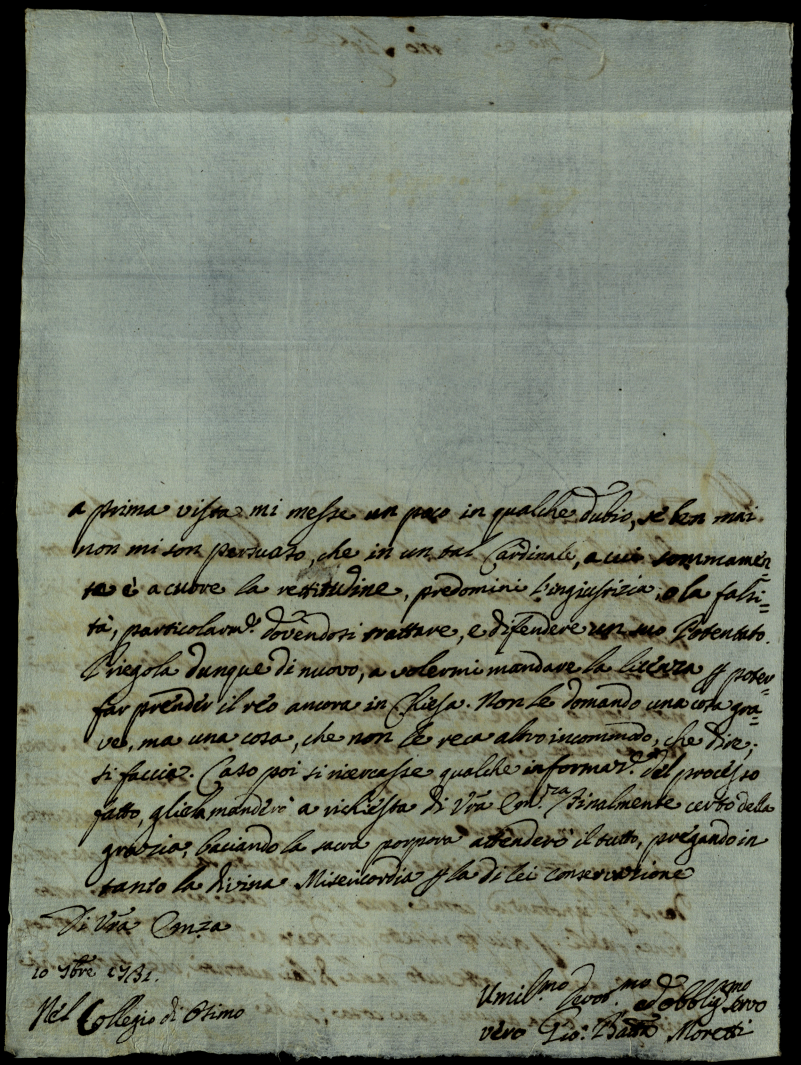 a prima vista mi messe un poco in qualche dubio, se ben mai
non mi son persuaso, che in un tal Cardinale, a cui sommamen=
te è a cuore la rettitudine, predomini l'ingiustizia, o la falsi=
tà, particolarm.e dovendosi trattare, e difendere un suo Potentato.
Priegola dunque di nuovo, a volermi mandare la licenza p poter
far prender il reo ancora in Chiesa. Non le domando una cosa gra=
ve, ma una cosa, che non le reca altro incommodo, che dire,
si faccia. Caso poi si ricercasse qualche informaz.e del processo
fatto, gliela manderò a richiesta di Vra Em.za Finalmente certo della
grazia, baciando la sacra porpora attenderò il tutto, pregando in
tanto la divina Misericordia p la di lei conservazione
Di Vra Emza
10 9bre 1731.
Nel Collegio di Osimo
Umil.mo Devot.mo ed Obblig.mo Servo
vero Gio: Batta Moretti